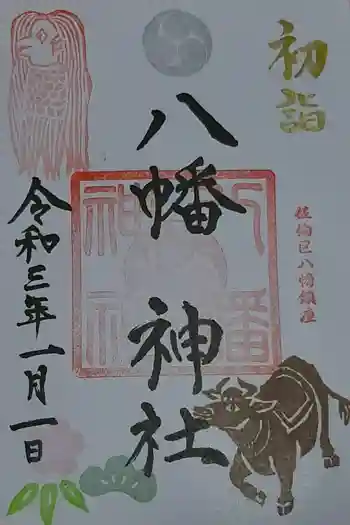 初詣
八幡神社
八幡神社
佐伯区八幡鎮座
令和三年一月一日